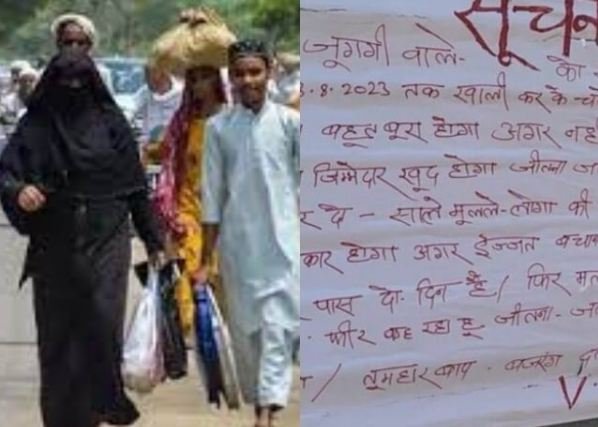 सूचना
जूगगी वाले- को
8.2023 तक खाली कर के
बहुत बूरा होगा अगर नही
जिम्मेदार खूद होगा जीतना
दे - साले मूलले-लोगो की
होगा अगर ईज्जत
पास दो-दिन है / फिर
फीर कह रहा हू जीतना-
/ तूमहार बाप बजरंग द
V.